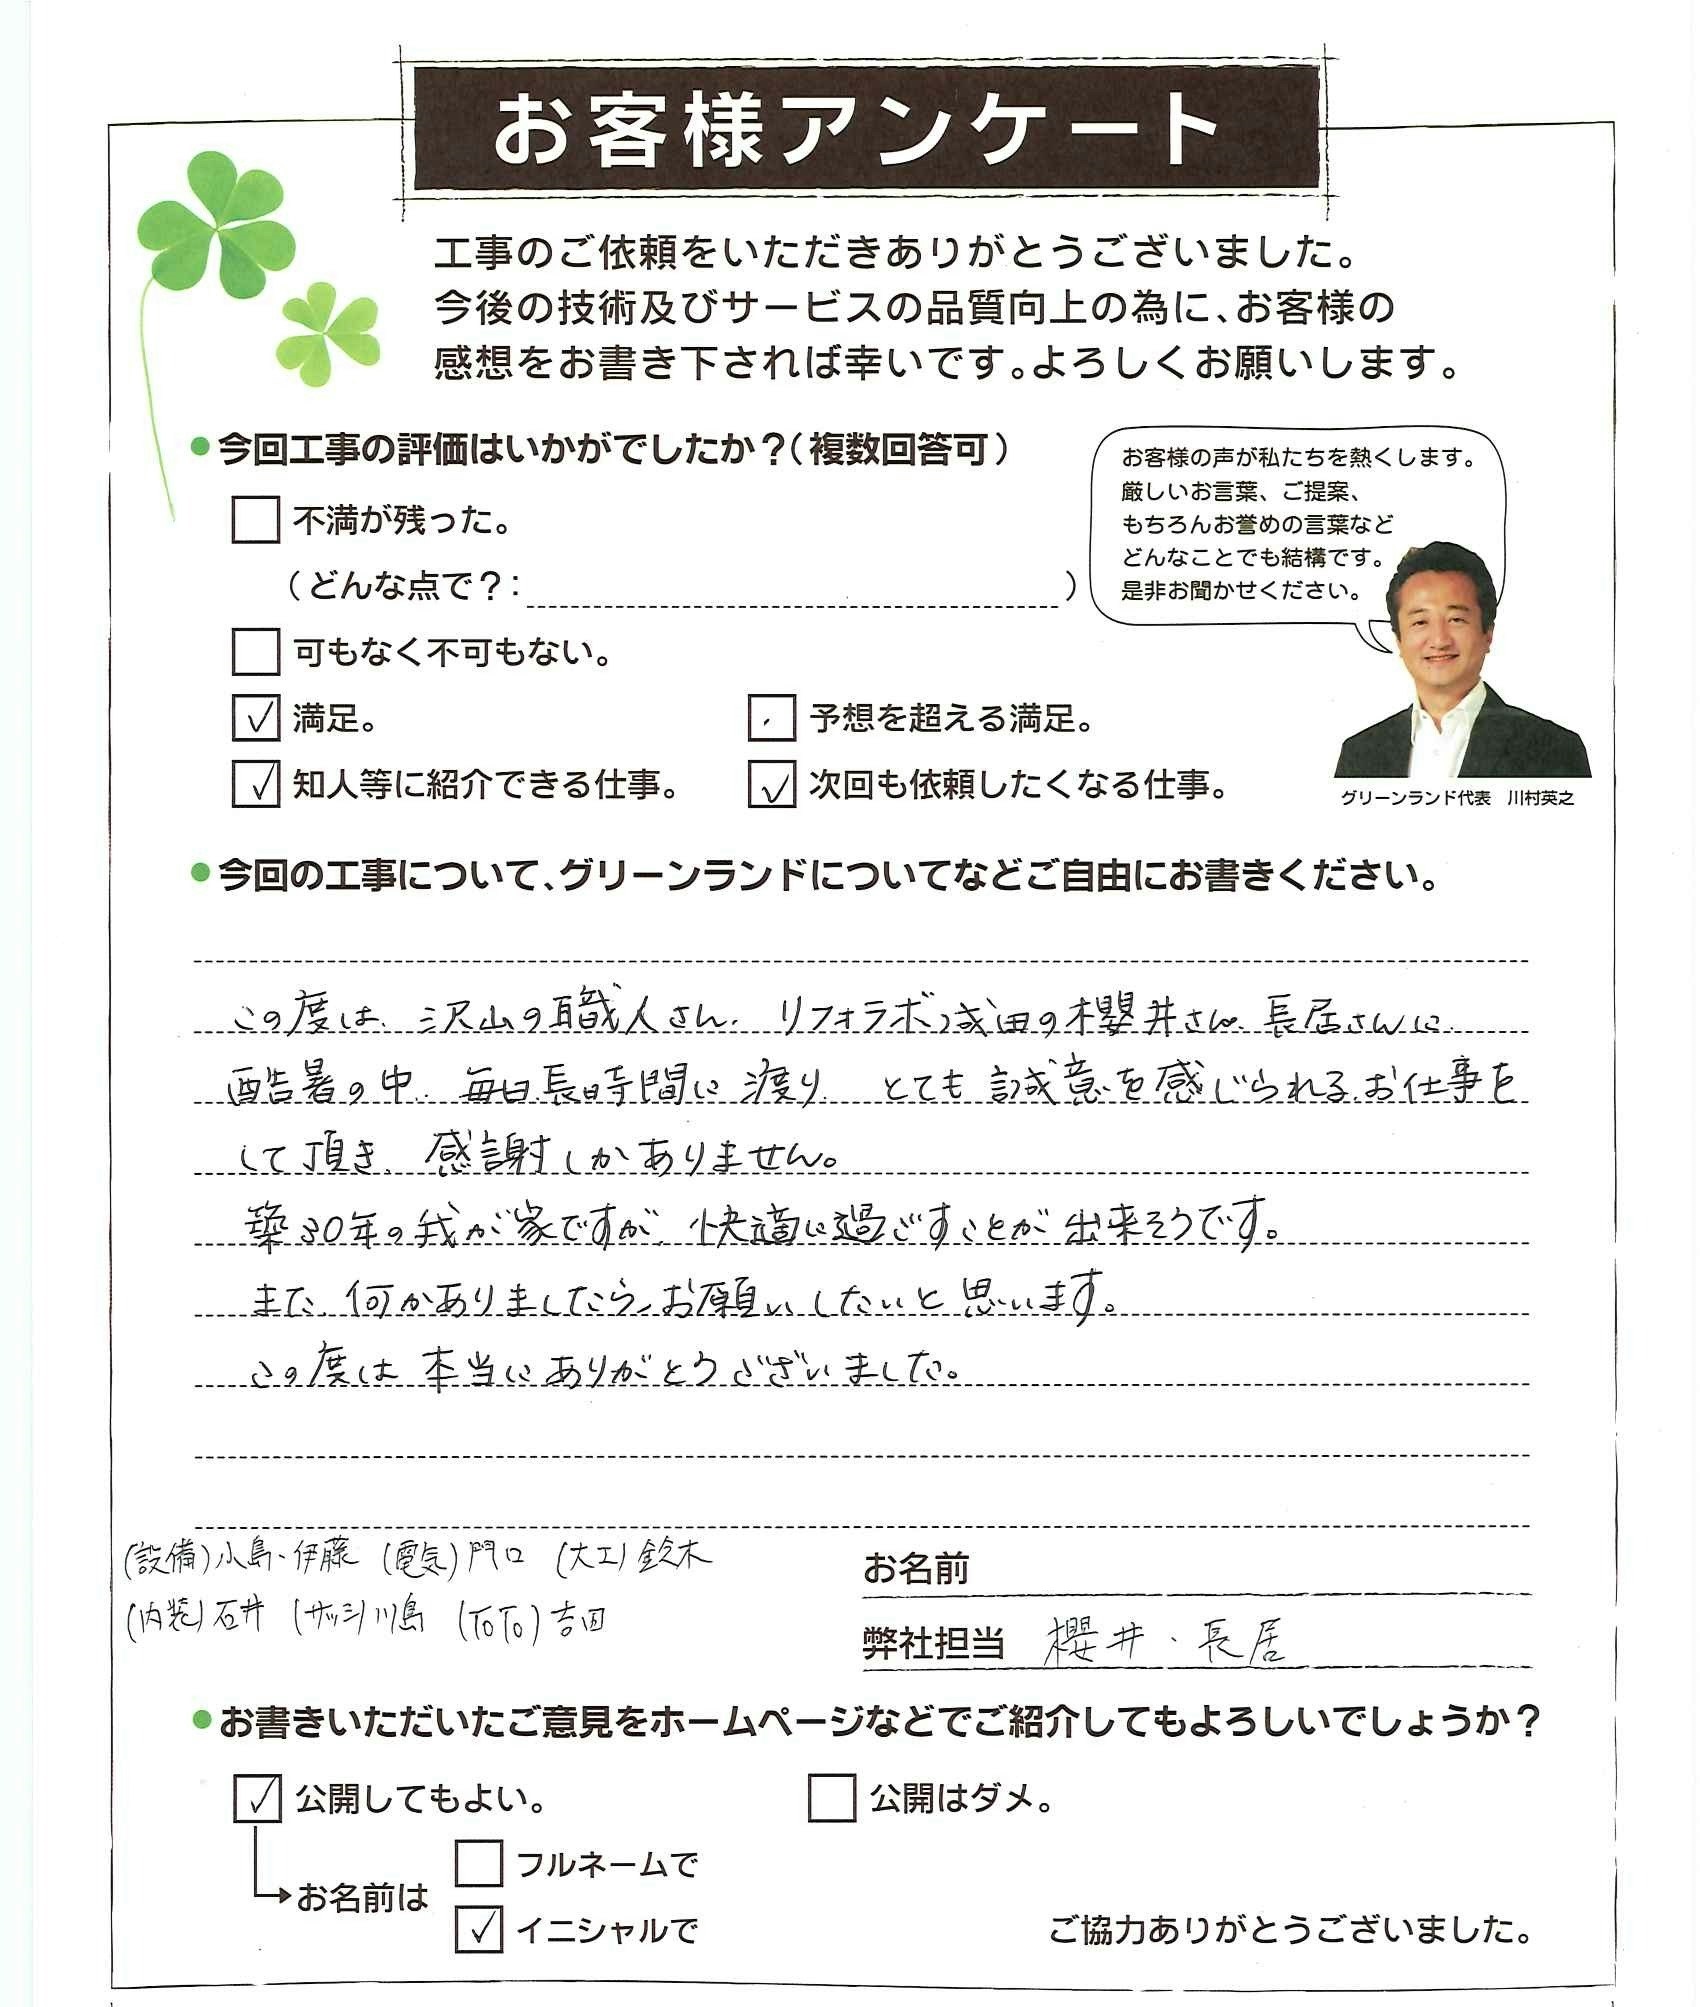 お客様アンケート
工事のご依頼をいただきありがとうございました。
今後の技術及びサービスの品質向上の為に、お客様の
感想をお書き下されば幸いです。よろしくお願いします。
●今回工事の評価はいかがでしたか？（複数回答可）
不満が残った。
（どんな点で？：　）
可もなく不可もない。
✓ 満足。
予想を超える満足。
✓ 知人等に紹介できる仕事。
✓ 次回も依頼したくなる仕事。
お客様の声が私たちを熱くします。
厳しいお言葉、ご提案、
もちろんお誉めの言葉など
どんなことでも結構です。
是非お聞かせください。
グリーンランド代表　川村英之
●今回の工事について、グリーンランドについてなどご自由にお書きください。
この度は、沢山の職人さん、リフォラボ成田の櫻井さん、長居さんに
酷暑の中、毎日長時間に渡り、とても誠意を感じられるお仕事を
して頂き、感謝しかありません。
築30年の我が家ですが、快適に過ごすことが出来そうです。
また、何かありましたら、お願いしたいと思います。
この度は本当にありがとうございました。
(設備)小島・伊藤 (電気)門口 (大工)鈴木
(内装)石井 (サッシ)川島 (TOTO)吉田
お名前
弊社担当 櫻井・長居
●お書きいただいたご意見をホームページなどでご紹介してもよろしいでしょうか？
✓ 公開してもよい。
公開はダメ。
お名前は
フルネームで
✓ イニシャルで
ご協力ありがとうございました。